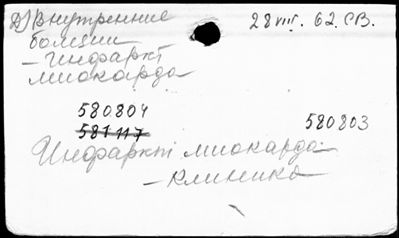 Д) Внутренние 28 VIII. 62. СВ.
болезни
– Инфаркт
миокарда
580804
581117 580803
Инфаркт миокарда
– клиника